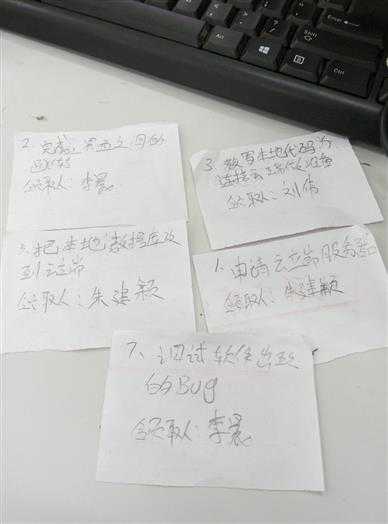 2、完成界面之间的
跳转
领取人:李晨
3、改写本地代码为
连接云端代码
领取人:刘伟
把本地数据库改
到云端
领取人:朱建颖
1、申请云端服务器
领取人:朱建颖
7、调试软件出现
的Bug
领取人:李晨
Shift
Ctrl